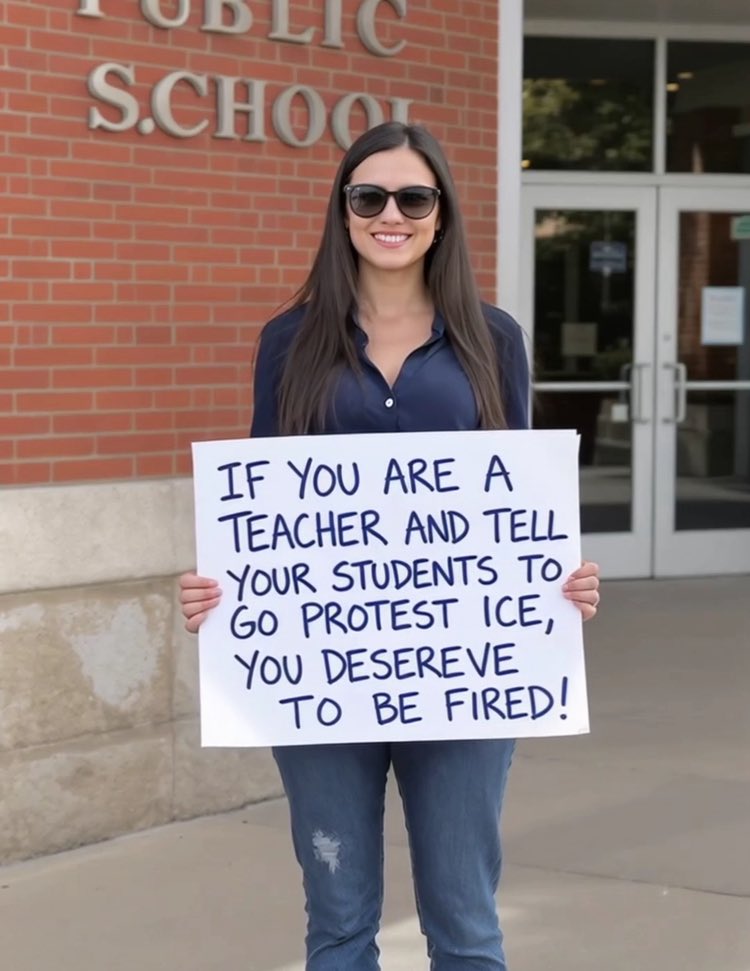 PUBLIC
S.CHOOL
IF YOU ARE A
TEACHER AND TELL
YOUR STUDENTS TO
GO PROTEST ICE,
YOU DESEREVE
TO BE FIRED!